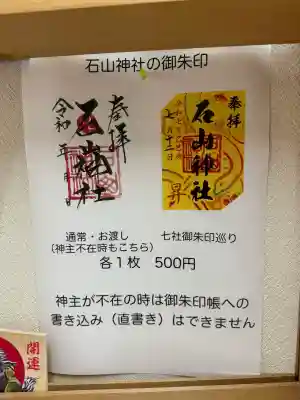 石山神社の御朱印
奉拝
石山神社
令和 年 月 日
奉拝
石山神社
七月十二日
昇
通常・お渡し
(神主不在時もこちら)
七社御朱印巡り
各1枚 500円
神主が不在の時は御朱印帳への
書き込み（直書き）はできません
開運